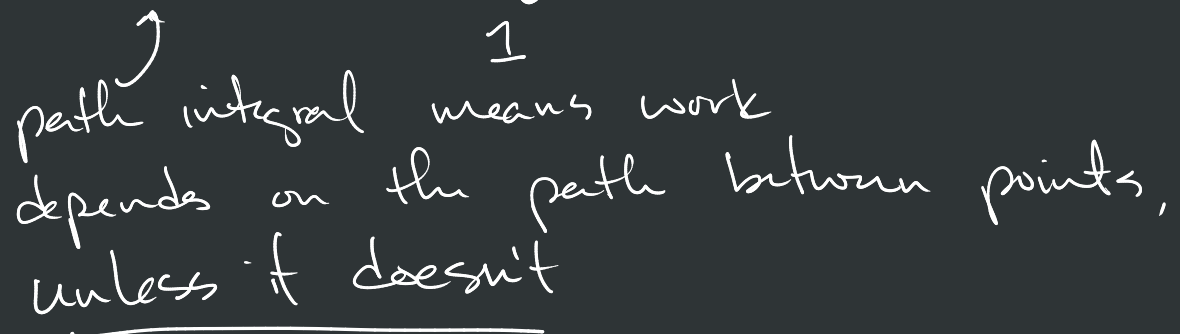 1
path integral means work
depends on the path between points,
unless it doesn't